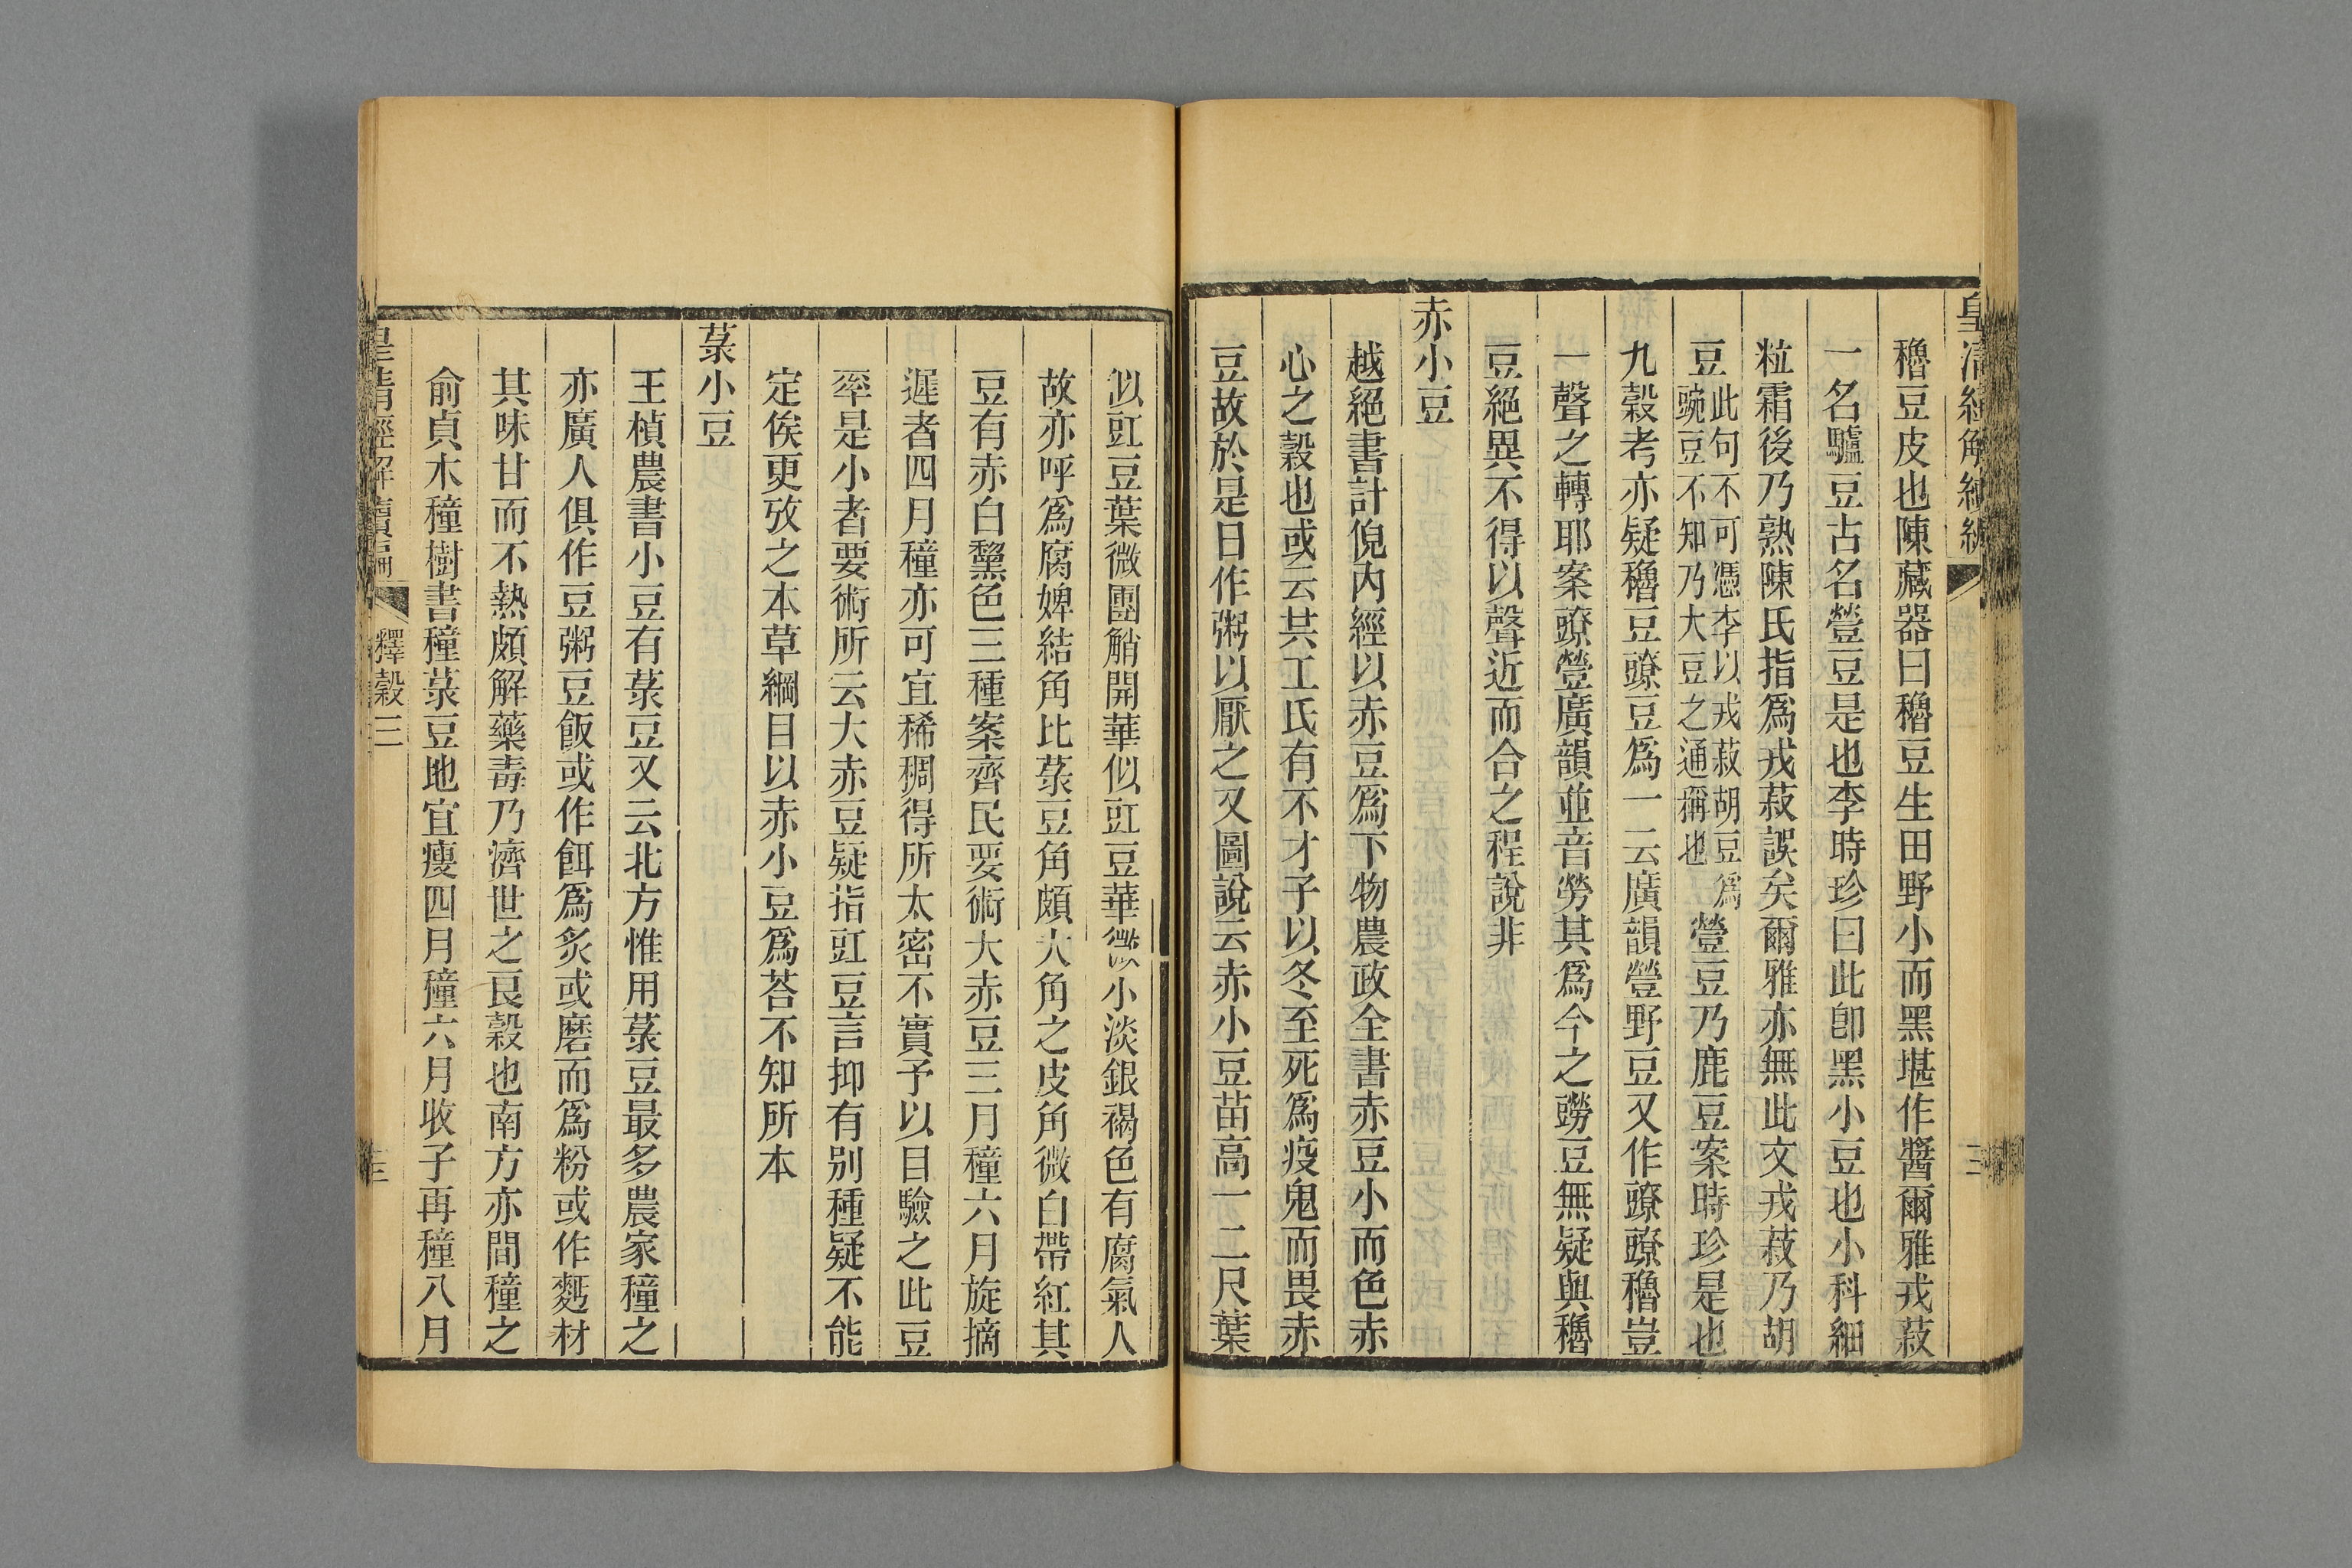 皇清經解續編
穭豆皮也陳藏器曰穭豆生田野小而黑堪作醬爾雅戎菽
一名驢豆古名䝁豆是也李時珍曰此卽黑小豆也小科細
粒霜後乃熟陳氏指爲戎菽誤矣爾雅亦無此文戎菽乃胡
豆此句不可憑李以戎菽胡豆爲豌豆不知乃大豆之通稱也䝁豆乃鹿豆案時珍是也
九穀考亦疑穭豆䝀豆爲一云廣韻䝁野豆又作䝀䝀穭豈
一聲之轉耶案䝀䝁廣韻並音勞其爲今之䝁豆無疑與穭
豆絕異不得以聲近而合之程說非
赤小豆
越絕書計倪內經以赤豆爲下物農政全書赤豆小而色赤
心之穀也或云共工氏有不才子以冬至死爲疫鬼而畏赤
豆故於是日作粥以厭之又圖說云赤小豆苗高一二尺葉
似豇豆葉微團艄開華似豇豆華微小淡銀褐色有腐氣人
故亦呼爲腐婢結角比菉豆角頗大角之皮角微白帶紅其
豆有赤白黧色三種案齊民要術大赤豆三月穜六月旋摘
遲者四月穜亦可宜稀稠得所太密不實予以目驗之此豆
率是小者要術所云大赤豆疑指豇豆言抑有別種疑不能
定俟更攷之本草綱目以赤小豆爲荅不知所本
菉小豆
王楨農書小豆有菉豆又云北方惟用菉豆最多農家穜之
亦廣人俱作豆粥豆飯或作餌爲炙或磨而爲粉或作麪材
其味甘而不熱頗解藥毒乃濟世之良穀也南方亦間穜之
俞貞木穜樹書穜菉豆地宜瘦四月穜六月收子再穜八月
皇清經解續編
釋穀三
三